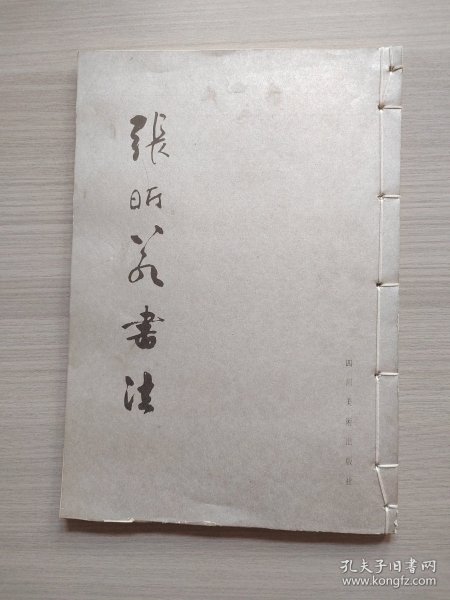 張昕若書法
四川美术出版社
孔夫子旧书网
www.kongfz.com